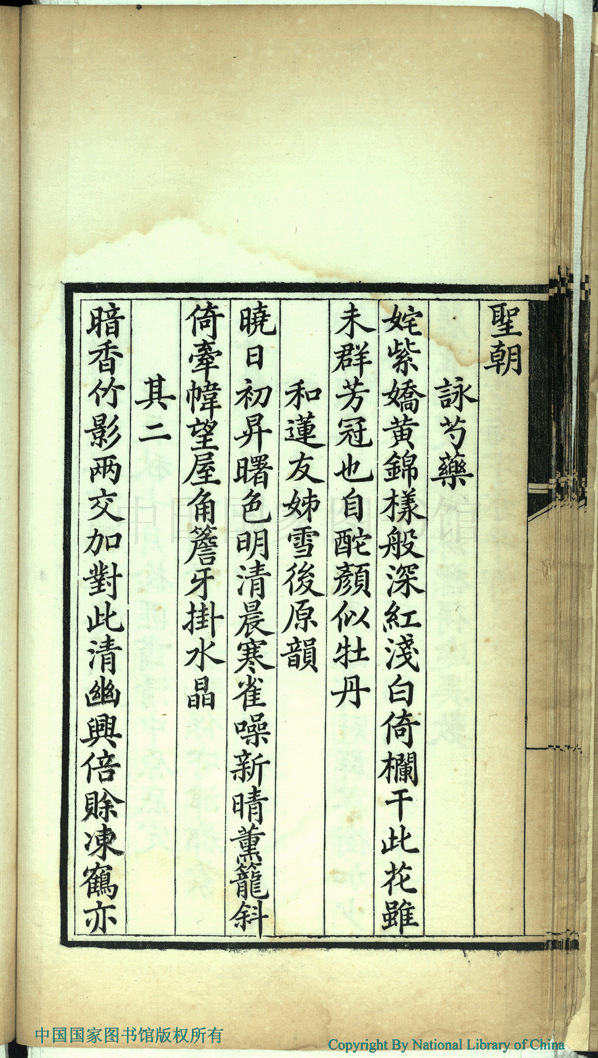 聖朝
詠芍藥
姹紫嬌黃錦樣般深紅淺白倚欄干此花雖
未群芳冠也自酡顏似牡丹
和蓮友姊雪後原韻
曉日初昇曙色明清晨寒雀噪新晴薰籠斜
倚牽幃望屋角簷牙掛水晶
其二
暗香竹影兩交加對此清幽興倍賒凍鶴亦
中国国家图书馆版权所有
Copyright By National Library of China